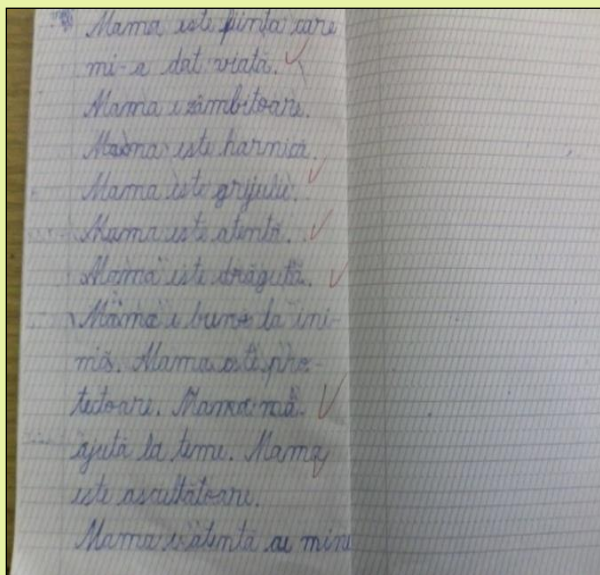 Mama este ființa care
mi-a dat viață.
Mama e zâmbitoare.
Mama este harnică.
Mama este grijulie.
Mama este atentă.
Mama este drăguță.
Mama e bună la ini-
mă. Mama este pro-
tectoare. Mama mă
ajută la teme. Mama
este ascultătoare.
Mama e atentă cu mine